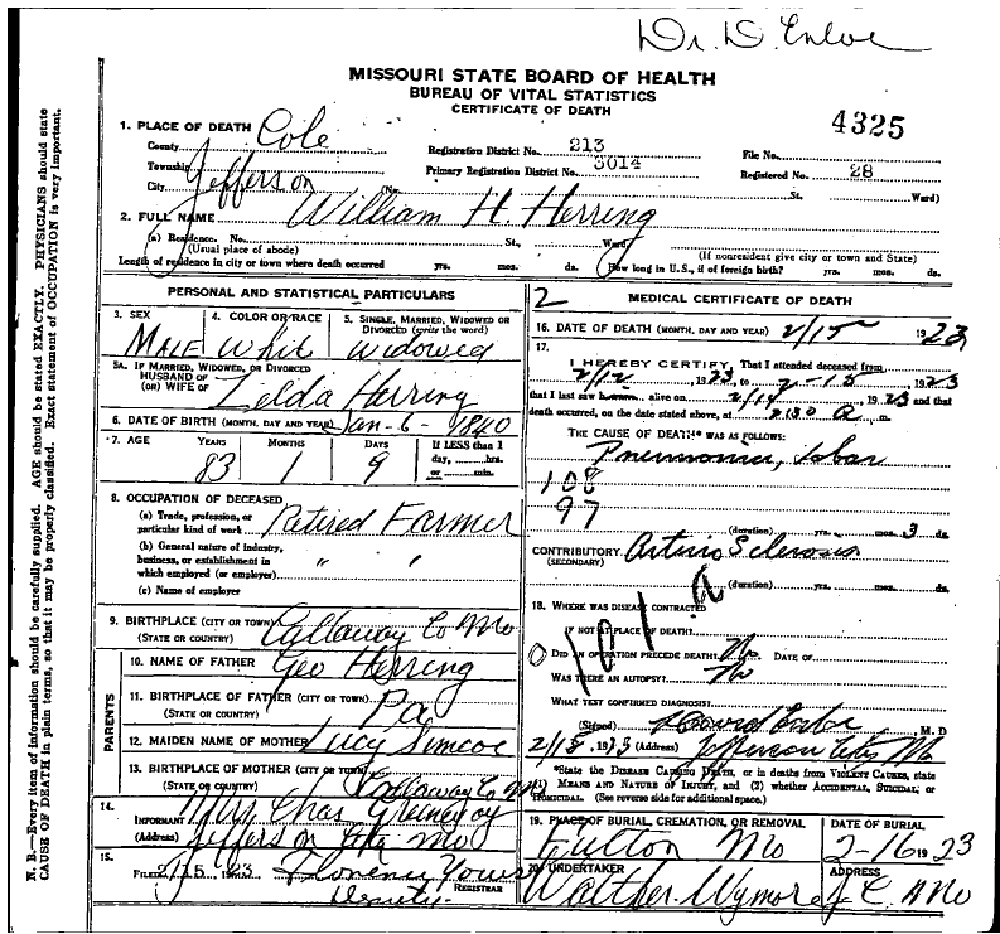 Dr. D. Enloe
MISSOURI STATE BOARD OF HEALTH
BUREAU OF VITAL STATISTICS
CERTIFICATE OF DEATH
4325
1. PLACE OF DEATH
County Cole Registration District No. 213 File No.
Township Primary Registration District No. 3014 Registered No. 28
City Jefferson (No. St. Ward)
2. FULL NAME William H. Herring
(a) Residence. No. St., Ward,
(Usual place of abode) (If nonresident give city or town and State)
Length of residence in city or town where death occurred yrs. mos. ds. How long in U.S., if of foreign birth? yrs. mos. ds.
PERSONAL AND STATISTICAL PARTICULARS
3. SEX 4. COLOR OR RACE 5. SINGLE, MARRIED, WIDOWED OR
DIVORCED (write the word)
MALE Whit Widowed
5A. IF MARRIED, WIDOWED, OR DIVORCED
HUSBAND OF
(OR) WIFE OF Zelda Herring
6. DATE OF BIRTH (MONTH, DAY AND YEAR) Jan-6-1840
7. AGE YEARS MONTHS DAYS If LESS than 1
day, hrs.
or min.
83 1 9
8. OCCUPATION OF DECEASED
(a) Trade, profession, or
particular kind of work Retired Farmer
(b) General nature of industry,
business, or establishment in " "
which employed (or employer)
(c) Name of employer
9. BIRTHPLACE (CITY OR TOWN) Callaway Co Mo
(STATE OR COUNTRY)
PARENTS
10. NAME OF FATHER Geo Herring
11. BIRTHPLACE OF FATHER (CITY OR TOWN)
(STATE OR COUNTRY) Pa
12. MAIDEN NAME OF MOTHER Lucy Simcoe
13. BIRTHPLACE OF MOTHER (CITY OR TOWN)
(STATE OR COUNTRY) Callaway Co Mo
14.
INFORMANT Mrs Chas
(Address) Jefferson City Mo
15.
FILED 2/15 1923 Florence
Deputy REGISTRAR
2 MEDICAL CERTIFICATE OF DEATH
16. DATE OF DEATH (MONTH, DAY AND YEAR) 2/15 1923
17.
I HEREBY CERTIFY, That I attended deceased from
2/12, 1923, to 2-15, 1923
that I last saw alive on 2/14, 1923 and that
death occurred, on the date stated above, at 230 a m.
THE CAUSE OF DEATH* WAS AS FOLLOWS:
Pneumonia, Lobar
108
97
(duration) yrs. mos. 3 ds.
CONTRIBUTORY Arterio Sclerosis
(SECONDARY)
(duration) yrs. mos. ds.
101 a
18. WHERE WAS DISEASE CONTRACTED
IF NOT AT PLACE OF DEATH?
DID AN OPERATION PRECEDE DEATH? No DATE OF
WAS THERE AN AUTOPSY? No
WHAT TEST CONFIRMED DIAGNOSIS?
(Signed) M. D
, 1923 (Address) Jefferson City Mo
*State the DISEASE CAUSING DEATH, or in deaths from VIOLENT CAUSES, state
(1) MEANS AND NATURE OF INJURY, and (2) whether ACCIDENTAL, SUICIDAL, or
HOMICIDAL. (See reverse side for additional space.)
19. PLACE OF BURIAL, CREMATION, OR REMOVAL DATE OF BURIAL
Fulton Mo 2-16 1923
20. UNDERTAKER ADDRESS
Walther. Wymore J. C. Mo
N. B.—Every item of information should be carefully supplied. AGE should be stated EXACTLY. PHYSICIANS should state
CAUSE OF DEATH in plain terms, so that it may be properly classified. Exact statement of OCCUPATION is very important.